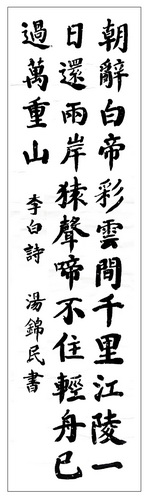 朝辭白帝彩雲間千里江陵一
日還兩岸猿聲啼不住輕舟已
過萬重山
李白詩 湯錦民書